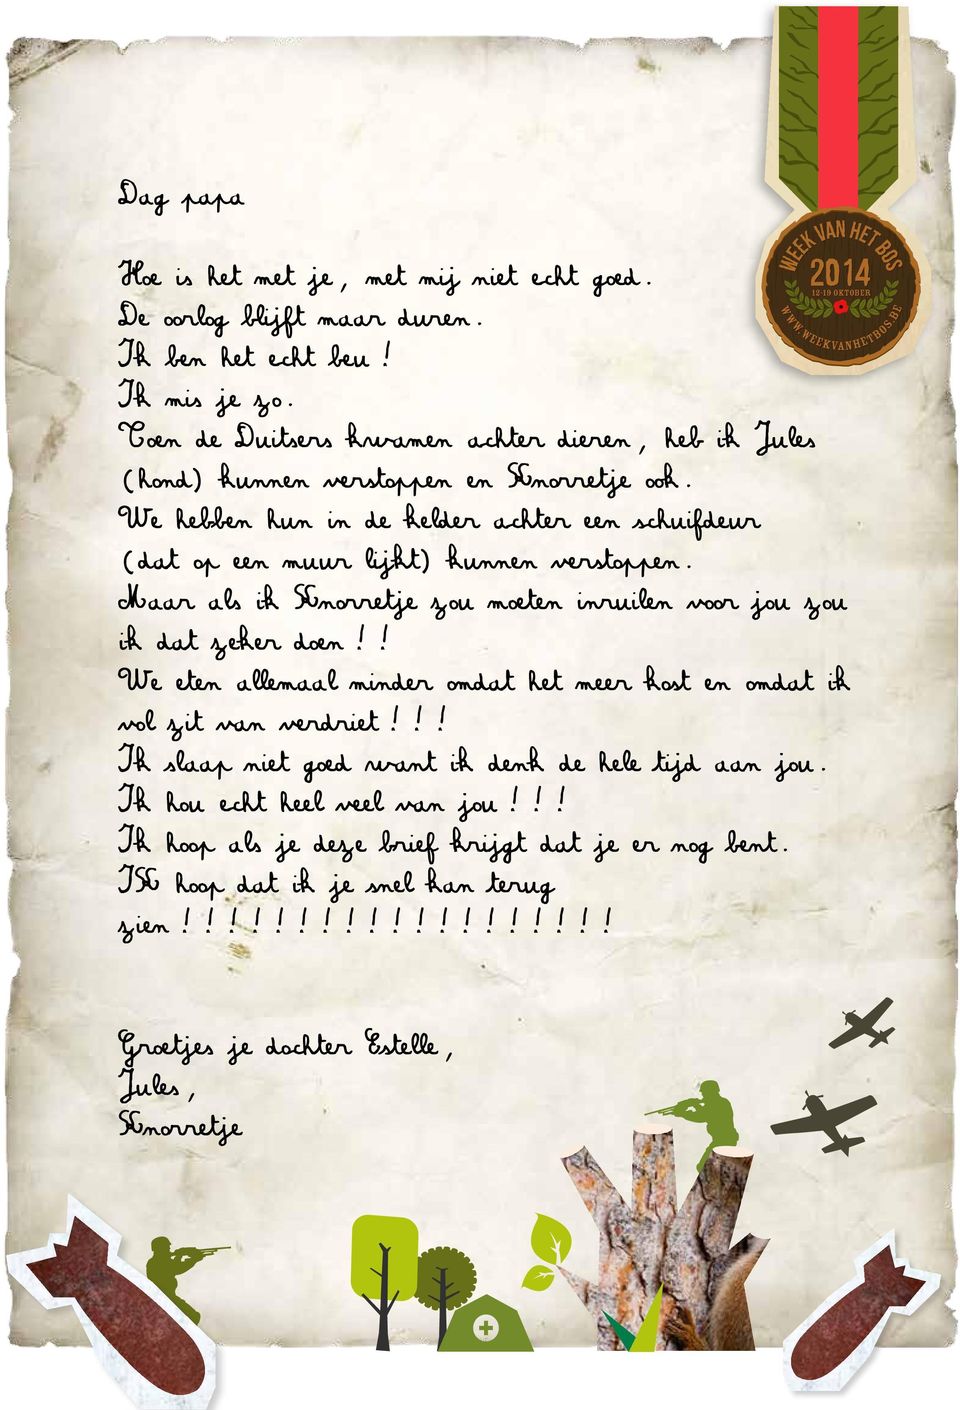 WEEK VAN HET BOS
2014
12-19 OKTOBER
WWW.WEEKVANHETBOS.BE
Dag papa
Hoe is het met je, met mij niet echt goed.
De oorlog blijft maar duren.
Ik ben het echt beu!
Ik mis je zo.
Toen de Duitsers kwamen achter dieren, heb ik Jules
(hond) kunnen verstoppen en Knorretje ook.
We hebben hun in de kelder achter een schuifdeur
(dat op een muur lijkt) kunnen verstoppen.
Maar als ik Knorretje zou moeten inruilen voor jou zou
ik dat zeker doen!!
We eten allemaal minder omdat het meer kost en omdat ik
vol zit van verdriet!!!
Ik slaap niet goed want ik denk de hele tijd aan jou.
Ik hou echt heel veel van jou!!!
Ik hoop als je deze brief krijgt dat je er nog bent.
IK hoop dat ik je snel kan terug
zien!!!!!!!!!!!!!!!!!!!
Groetjes je dochter Estelle,
Jules,
Knorretje